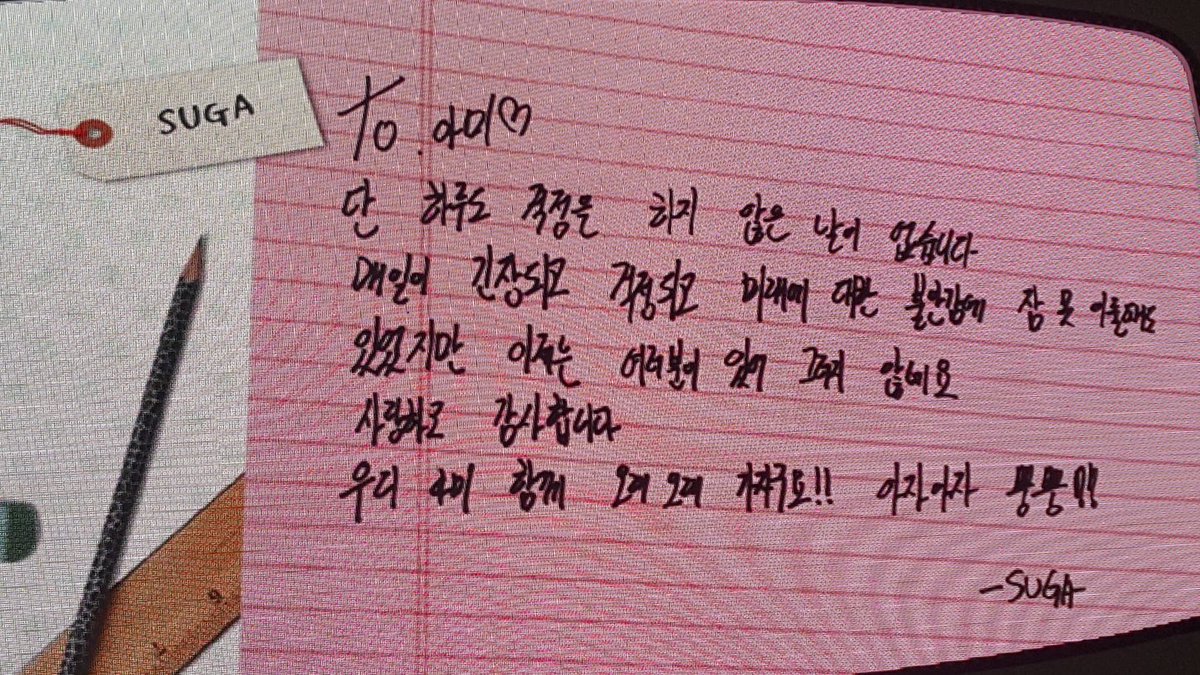 SUGA
To. 아미♡
단 하루도 걱정을 하지 않은 날이 없습니다
매일이 긴장되고 걱정되고 미래에 대한 불안감에 잠 못
있었지만 이제는 여러분이 있어 그렇지 않네요
사랑하고 감사합니다
우리 아미 함께 오래 오래 가자구요!! 아자아자
-SUGA-